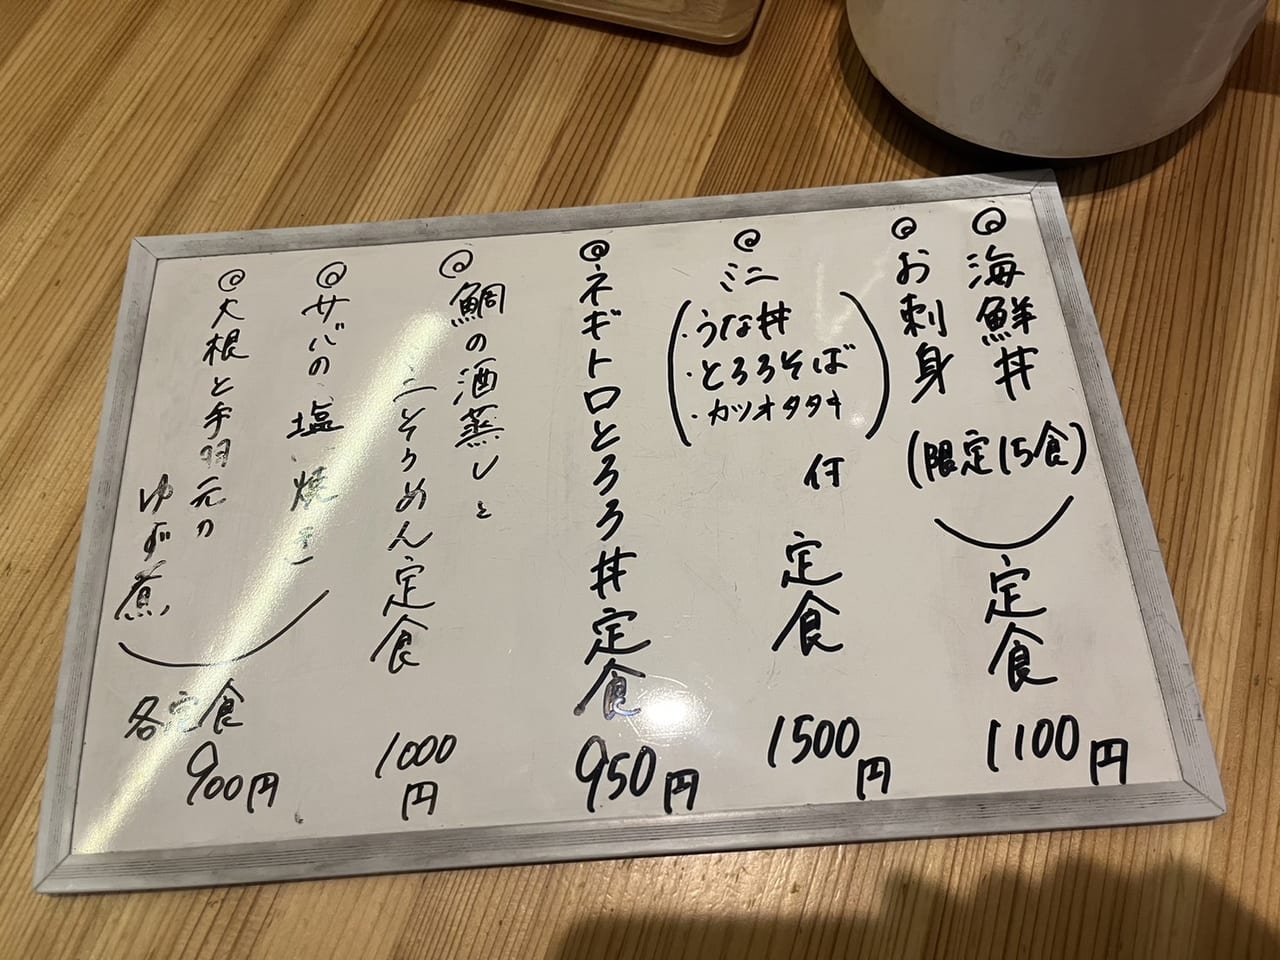 海鮮丼
お刺身
(限定15食)
定食
1100円
ミニ
・うな丼
・とろろそば
・カツオタタキ
付
定食
1500円
ネギトロとろろ丼定食
950円
鯛の酒蒸しと
にそうめん定食
1000円
サバの塩焼き
大根と手羽元の
ゆず煮
各定食
900円